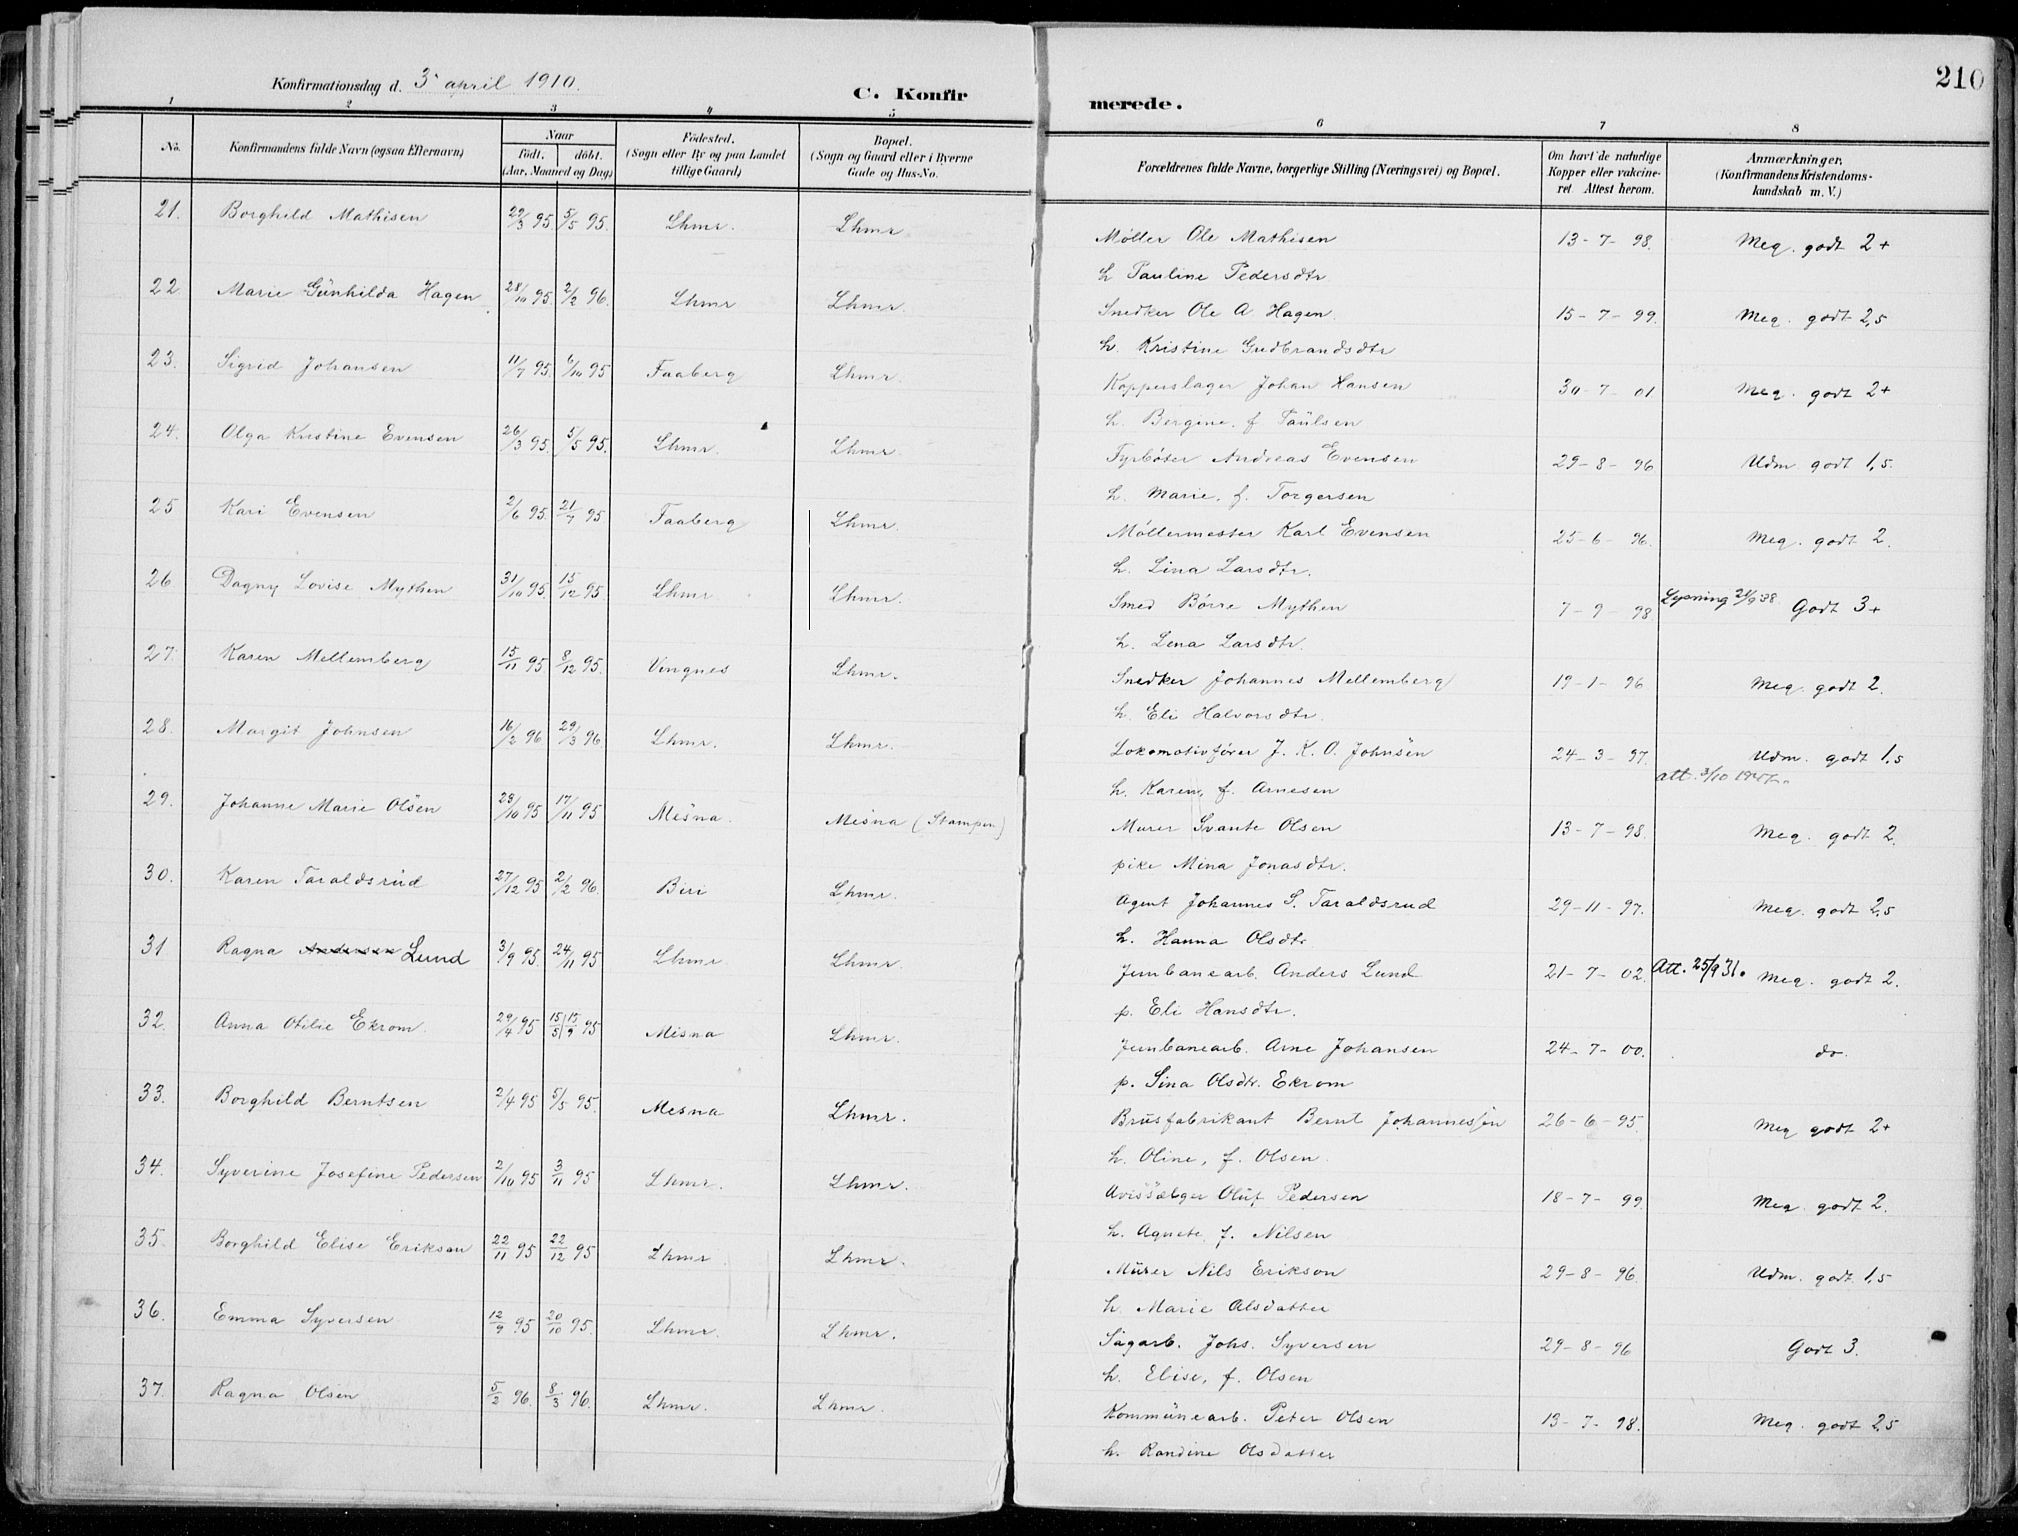 210
Konfirmationsdag d. 3' april 1910.
C. Konfirmerede.
1 2 3 4 5 6 7 8
No. Konfirmandens fulde Navn (ogsaa Efternavn) Naar født. døbt. (Aar, Maaned og Dag) Fødested. (Sogn eller By og paa Landet tillige Gaard) Bopæl. (Sogn og Gaard eller i Byerne Gade og Hus-No. Forældrenes fulde Navne, borgerlige Stilling (Næringsvei) og Bopæl. Om havt de naturlige Kopper eller vakcineret Attest herom. Anmærkninger, (Konfirmandens Kristendomskundskab m. V.)
21. Borghild Mathisen 29/3 95. 5/5 95. Lhmr. Lhmr. Møller Ole Mathisen 13-7-98. Meg. godt 2+
h Pauline Pedersdtr
22 Marie Gunhilda Hagen 28/10 95. 2/2 96. Lhmr Lhmr. Snedker Ole A Hagen. 15-7-99. Meg. godt 2,5
h. Kristine Gudbrandsdtr
23. Sigrid Johansen 11/7 95. 6/10 95 Faaberg Lhmr. Kopperslager Johan Hansen 30-7-01 Meg. godt 2+
h. Bergine, f Paulsen
24. Olga Kristine Evensen 26/3 95. 5/5 95. Lhmr. Lhmr. Fyrbøter Andreas Evensen 29-8-96 Udm godt 1,5.
h. Marie, f. Torgersen
25 Kari Evensen 2/6 95. 21/7 95. Faaberg Lhmr. Møllermester Karl Evensen 25-6-96. Meg. godt 2.
h. Lina Larsdtr.
26 Dagny Lovise Mythen 31/10 95. 15/12 95. Lhmr Lhmr. Smed Børre Mythen 7-9-98. Lysning 21/9 38. Godt 3+
h. Lena Larsdtr.
27. Karen Mellemberg 15/11 95 8/12 95. Vingnes Lhmr. Snedker Johannes Mellemberg 19-1-96 Meg. godt 2.
h. Eli Halvorsdtr.
28. Margit Johnsen 16/2 96 29/3 96 Lhmr. Lhmr. Lokomotivfører J. K. O. Johnsen 24-3-97. Udm. godt 1,5
h. Karen, f. Arnesen att. 3/10
29. Johanne Marie Olsen 28/10 95 17/11 95 Mesna. Mesna (Stampen) Murer Svante Olsen 13-7-98. Meg. godt 2.
pike Mina Jonasdtr.
30. Karen Taraldsrud 27/12 95 2/2 96. Biri Lhmr. Agent Johannes S. Taraldsrud 29-11-97. Meg. godt 2,5
h. Hanna Olsdtr
31 Ragna Andersen Lund 3/9 95. 24/11 95 Lhmr Lhmr. Jernbanearb. Anders Lund 21-7-02. Att. 25/9 31. Meg. godt 2.
p. Eli Hansdtr.
32. Anna Otilie Ekrom. 29/4 95 15/5 15/9 95 Misna Lhmr. Jernbanearb. Arne Johansen 24-7-00. do.
p. Sina Olsdtr. Ekrom
33. Borghild Berntsen 2/4 95 5/5 95. Mesna Lhmr. Brusfabrikant Bernt Johannessen 26-6-95. Meg godt 2+
h. Oline, f. Olsen.
34. Syverine Josefine Pedersen 2/10 95 3/11 95 Lhmr. Lhmr. Avissælger Oluf Pedersen 18-7-99 Meg. godt 2.
h. Agnete, f. Nilsen
35. Borghild Elise Erikson 22/11 95 22/12 95 Lhmr Lhmr. Murer Nils Erikson 29-8-96. Udm. godt 1,5
h. Marie Olsdatter
36. Emma Syversen 12/9 95. 20/10 95. Lhmr. Lhmr. Sagarb. Johs. Syversen 29-8-96 Godt 3.
h. Elise, f. Olsen
37. Ragna Olsen 5/2 96. 8/3 96. Lhmr. Lhmr. Kommunearb. Peter Olsen 13-7-98. Meg. godt 2,5
h. Randine Olsdatter